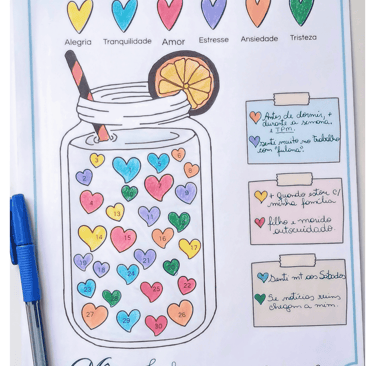 Alegria Tranquilidade Amor Estresse Ansiedade Tristeza
Antes de dormir, +
durante a semana,
e TPM.
senti muito no trabalho
com "fulana".
+ Quando estou c/
minha família
filho e marido
autocuidado
Senti mt aos Sábados
Se notícias ruins
chegam a mim.
3 5 6
1 8
2 7
4 10 9
13 11
14 15 16 17
18 19 21 20
24
23 25 22
28
27 26 29 30